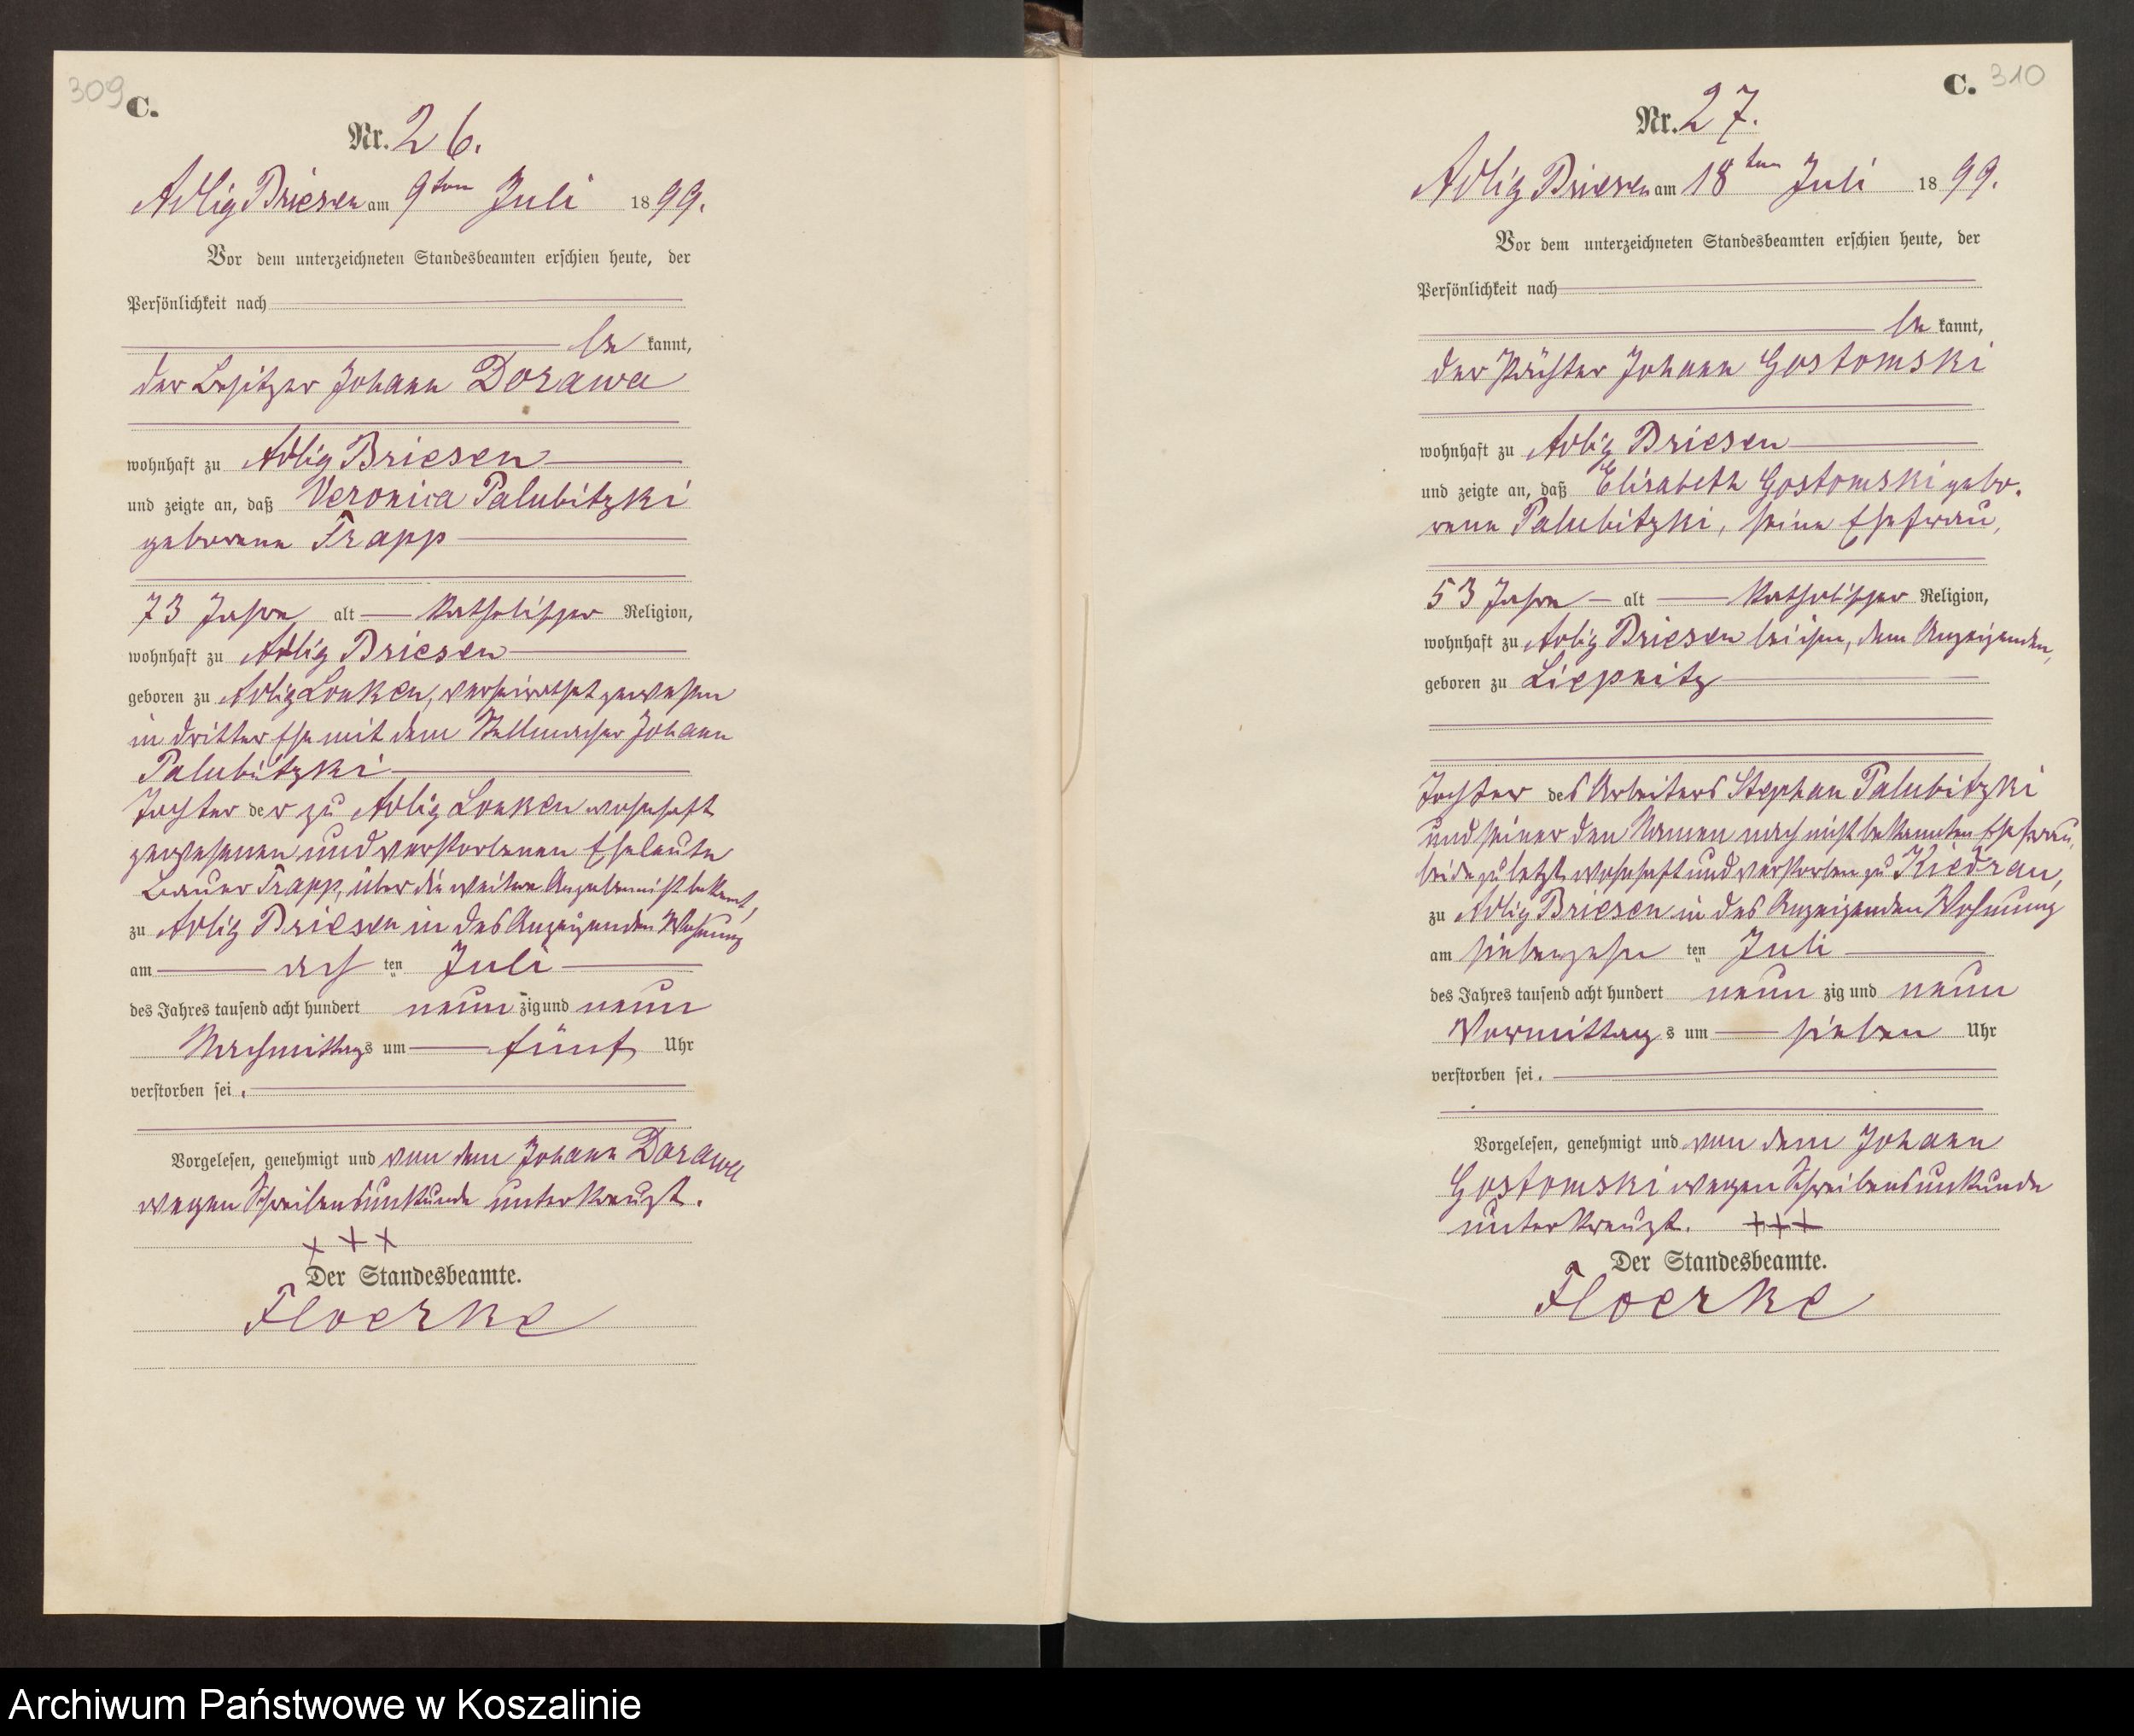 309
C.
Nr. 26.
Adlig Briesen am 9ten Juli 1899.
Vor dem unterzeichneten Standesbeamten erschien heute, der
Persönlichkeit nach
be kannt,
der Besitzer Johann Dorawa
wohnhaft zu Adlig Briesen
und zeigte an, daß Veronica Palubitzki
geborene Trapp
73 Jahre alt katholischer Religion,
wohnhaft zu Adlig Briesen
geboren zu Adlig Lonken, verheirathet gewesen
in dritter Ehe mit dem Stellmacher Johann
Palubitzki
Tochter der zu Adlig Lonken wohnhaft
gewesenen und verstorbenen Eheleute
Bauer Trapp, über die weitere Angaben nicht bekannt,
zu Adlig Briesen in des Anzeigenden Wohnung
am ach ten Juli
des Jahres tausend acht hundert neun zig und neun
Nachmittags um fünf Uhr
verstorben sei.
Vorgelesen, genehmigt und von dem Johann Dorawa
wegen Schreibensunkunde unterkreuzt.
+ + +
Der Standesbeamte.
Floerke
C. 310
Nr. 27.
Adlig Briesen am 18ten Juli 1899.
Vor dem unterzeichneten Standesbeamten erschien heute, der
Persönlichkeit nach
be kannt,
der Pächter Johann Gostomski
wohnhaft zu Adlig Briesen
und zeigte an, daß Elisabeth Gostomski gebo-
rene Palubitzki, seine Ehefrau,
53 Jahre alt katholischer Religion,
wohnhaft zu Adlig Briesen bei ihm, dem Anzeigenden,
geboren zu Liepnitz
Tochter des Arbeiters Stephan Palubitzki
und seiner dem Namen nach nicht bekannten Ehefrau,
beide zuletzt wohnhaft und verstorben zu Kiedrau,
zu Adlig Briesen in des Anzeigenden Wohnung
am siebenzehn ten Juli
des Jahres tausend acht hundert neun zig und neun
Vormittags um sieben Uhr
verstorben sei.
Vorgelesen, genehmigt und von dem Johann
Gostomski wegen Schreibensunkunde
unterkreuzt. +++
Der Standesbeamte.
Floerke
Archiwum Państwowe w Koszalinie